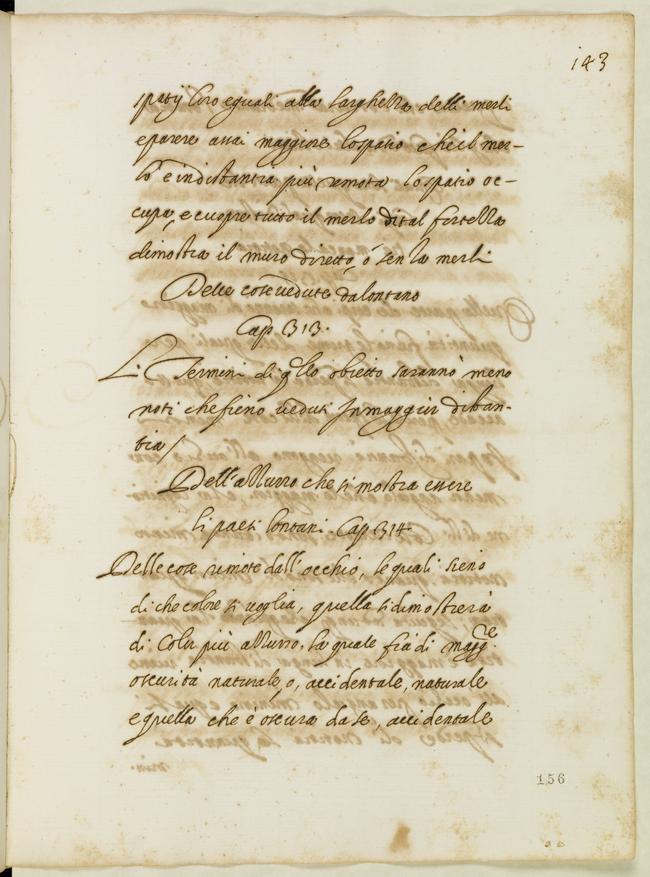 143
spatij loro eguali alla larghezza delli merli
e parere assai maggiore lo spatio che il mer-
lo e in distantia più remota lo spatio oc-
cupa, e cuopre tutto il merlo di tal fortezza
dimostra il muro diretto, ó senza merli
Delle cose vedute da lontano
Cap 313.
Li Termini di qllo obietto saranno meno
noti che sieno veduti In maggior distan-
tia /
Dell'azzurro che si mostra essere
li paesi lontani. Cap 314
Delle cose remote dall'occhio, le quali sieno
di che colore si voglia, quella si dimostrerà
di color più azzurro, la quale fia di magg.re
oscurità naturale, o, accidentale, naturale
e quella che è oscura da se, accidentale
156